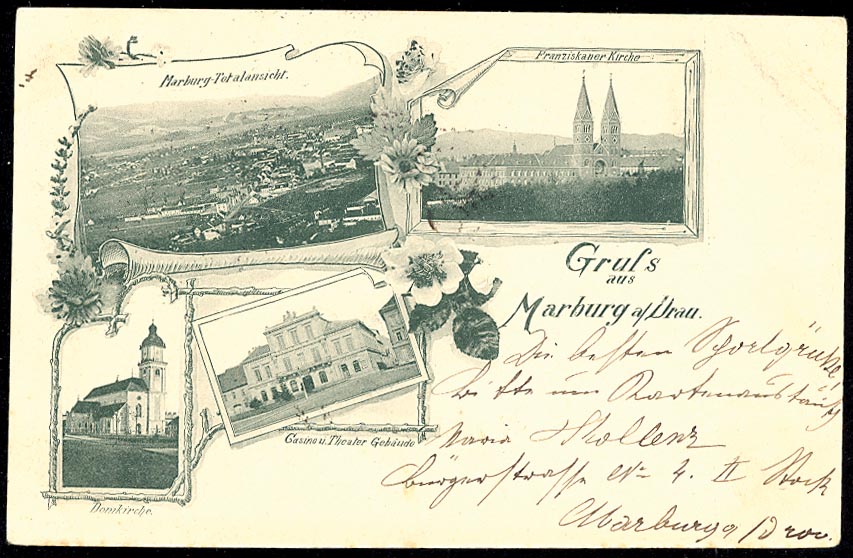 Marburg-Totalansicht.
Franziskaner Kirche
Gruſs
aus
Marburg a/Drau.
Casino u. Theater Gebäude
Domkirche.
Die besten Sportgrüße!
Bitte um Kartenaustausch
Maria
Bürgerstrasse No 4. II Stock
Marburg a/Drau.